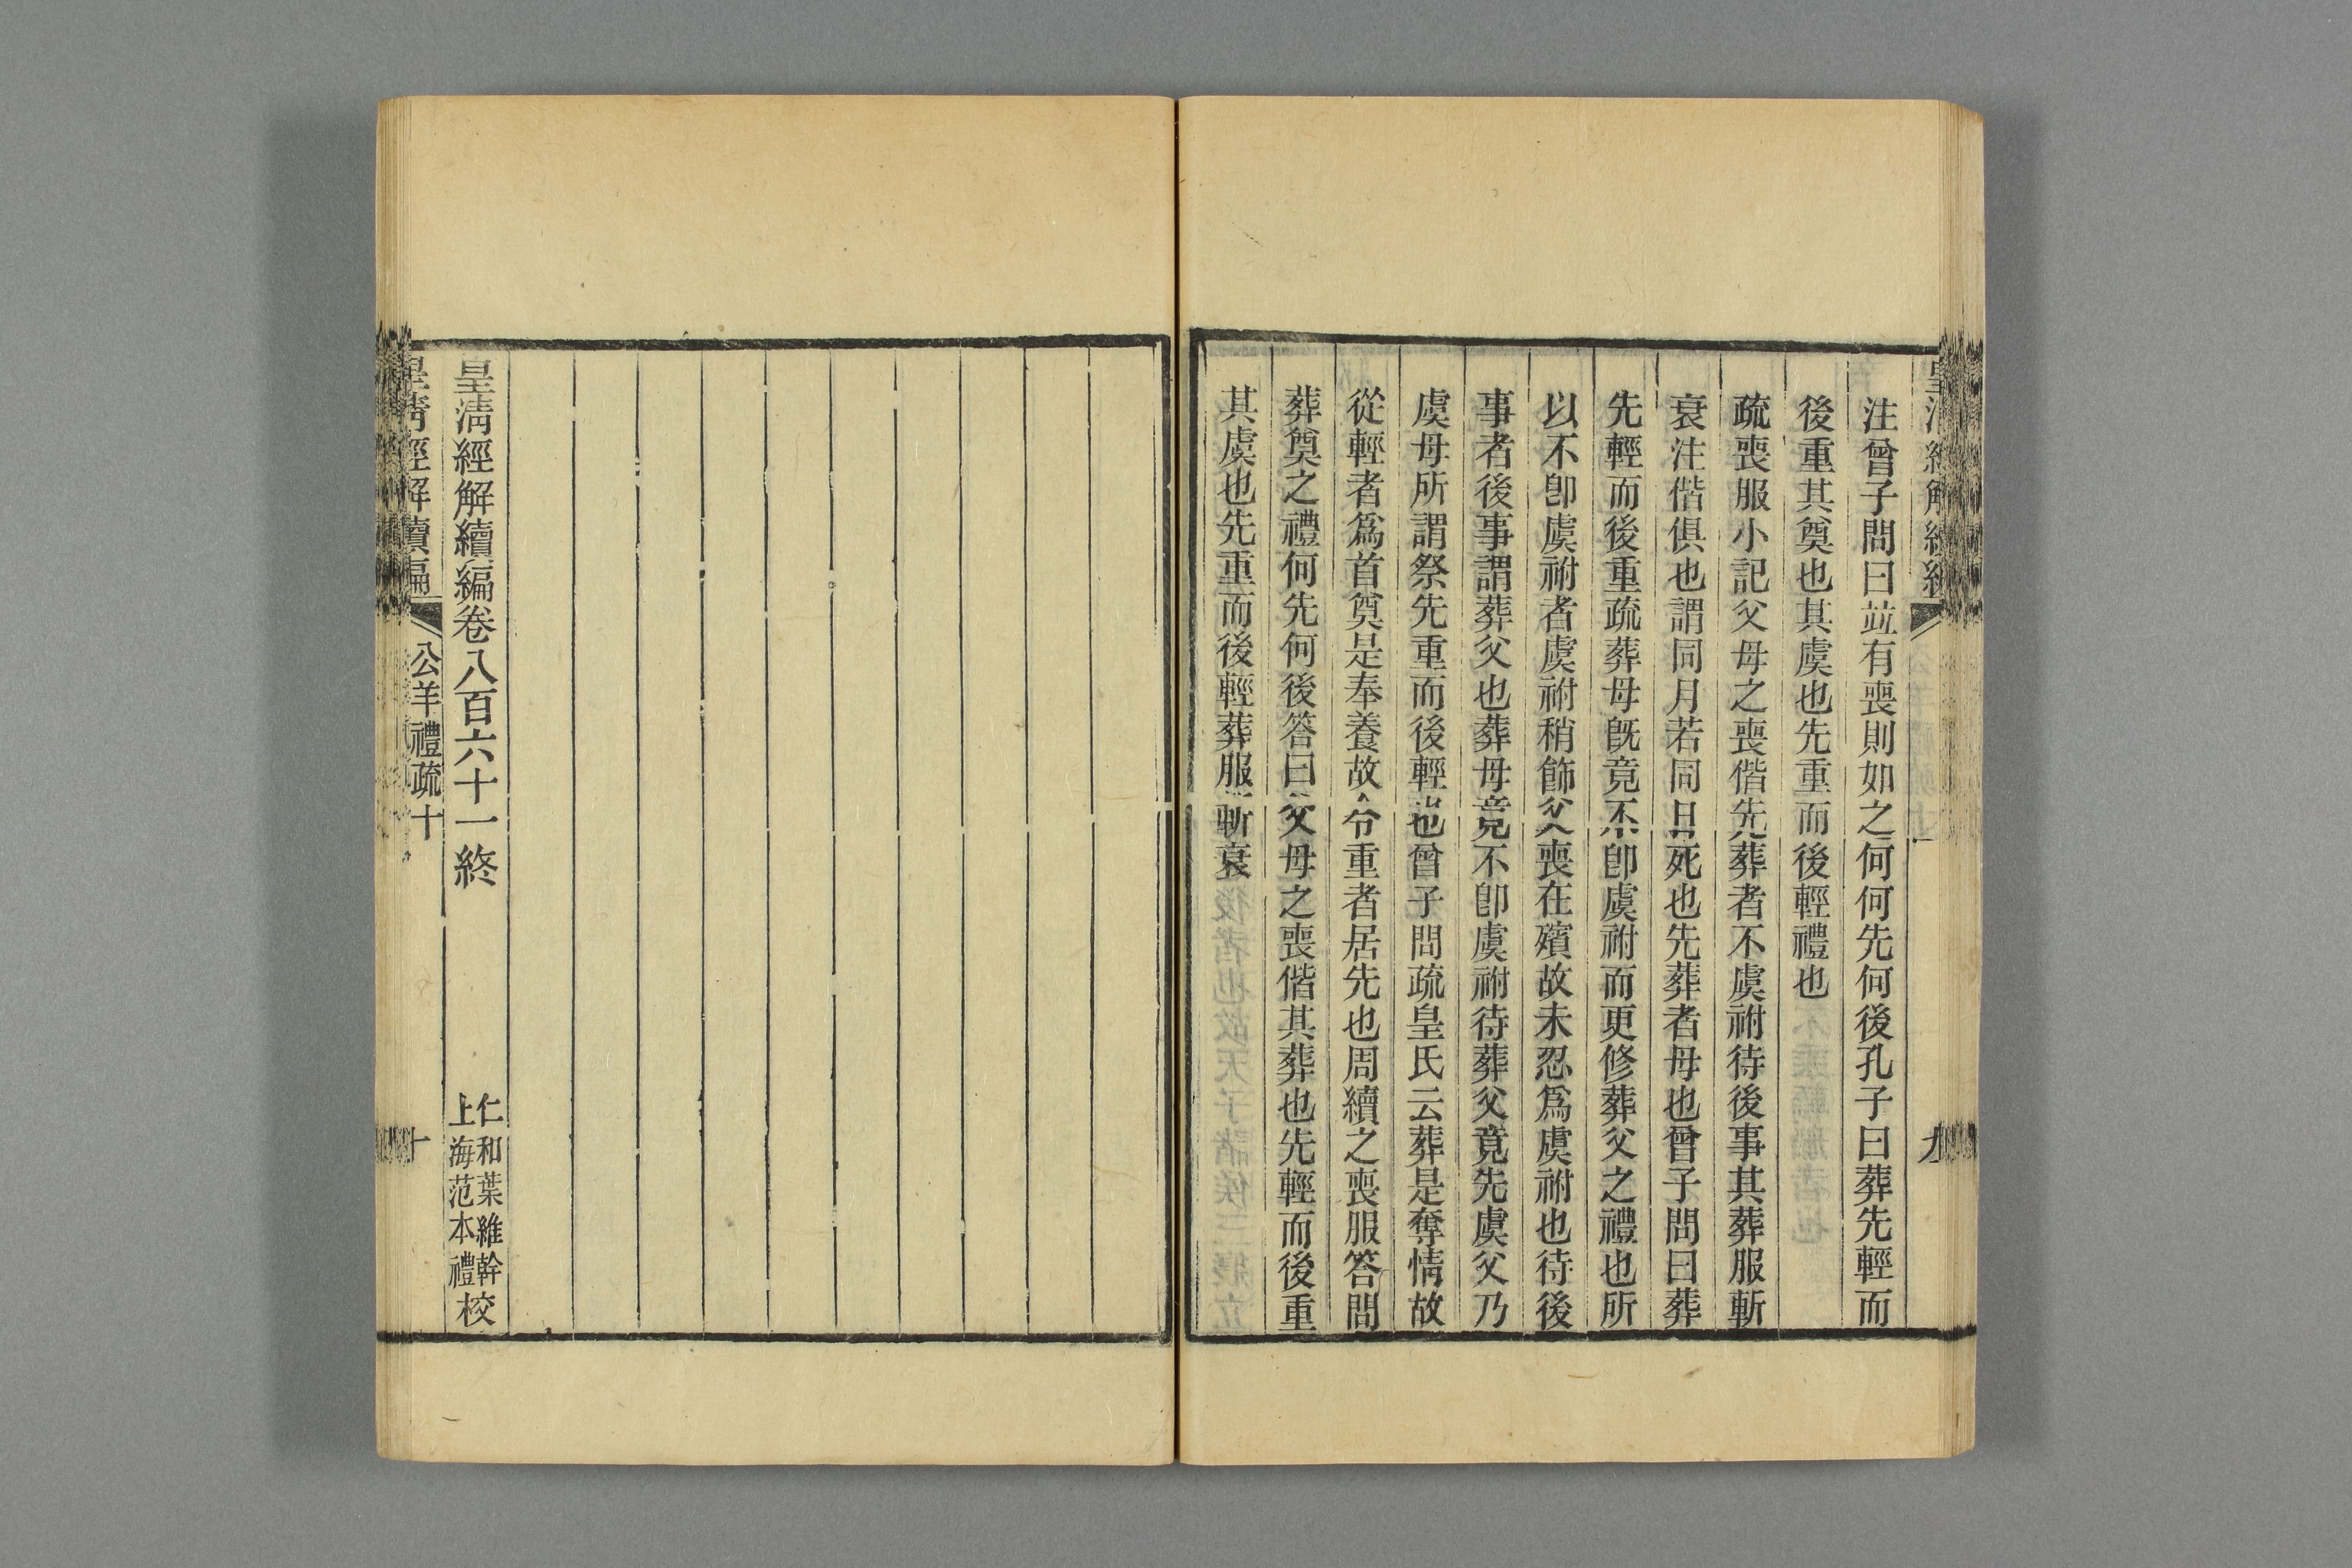 注曾子問曰竝有喪則如之何何先何後孔子曰葬先輕而
後重其奠也其虞也先重而後輕禮也
疏喪服小記父母之喪偕先葬者不虞祔待後事其葬服斬
衰注偕俱也謂同月若同日死也先葬者母也曾子問曰葬
先輕而後重疏葬母旣竟不卽虞祔而更修葬父之禮也所
以不卽虞祔者虞祔稍飾父喪在殯故未忍爲虞祔也待後
事者後事謂葬父也葬母竟不卽虞祔待葬父竟先虞父乃
虞母所謂祭先重而後輕也曾子問疏皇氏云葬是奪情故
從輕者爲首奠是奉養故令重者居先也周續之喪服答問
葬奠之禮何先何後答曰父母之喪偕其葬也先輕而後重
其虞也先重而後輕葬服斬衰
九
皇清經解續編卷八百六十一終
仁和葉維幹
上海范本禮
校
皇清經解續編
公羊禮疏十
十